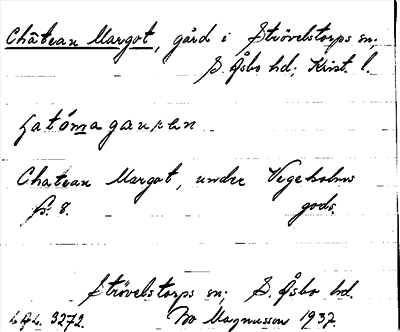 Château Margot, gård i Strövelstorps sn;
S. Åsbo hd; Krist. l.
Chateau Margot, under Vegeholms
fr. 8. gods.
Strövelstorps sn; S. Åsbo hd.
3272. Bo Magnusson 1937.